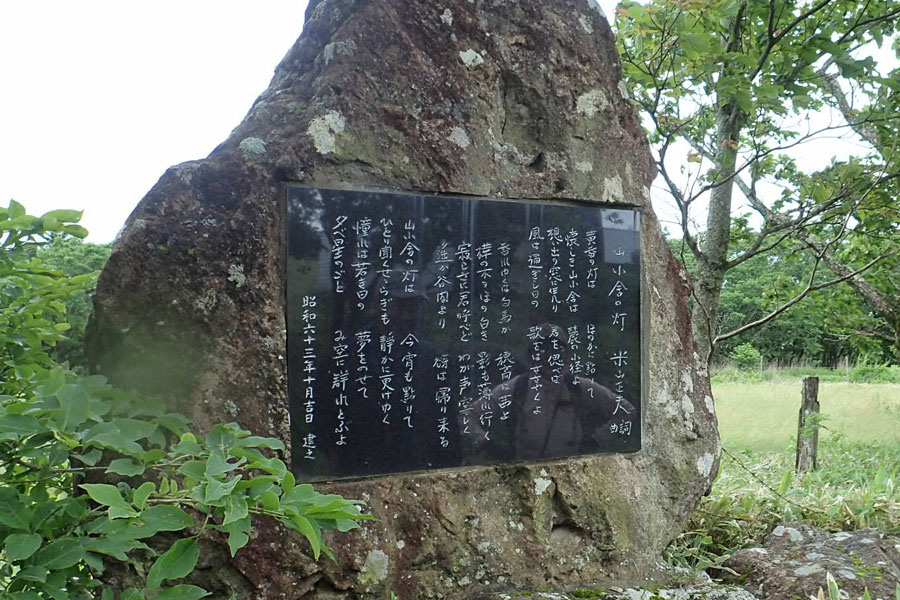 山小舎の灯 米山正夫 詞曲
黄昏の灯は ほのかに點りて
懐しき山小舎は 麓の小径よ
想ひ出の窓に凭り 君を偲べば
風は過ぎし日の 歌をばささやくよ
暮れゆくは白馬か 穂高は茜よ
樺の木のほの白き 影も薄れ行く
寂しさに君呼べど わが声空しく
遥か谷間より 谺は帰り来る
山小舎の灯は 今宵も點りて
ひとり聞くせせらぎも 静かに更けゆく
憧れは若き日の 夢をのせて
夕べ星のごと み空に群れとぶよ
昭和六十三年十月吉日 建之